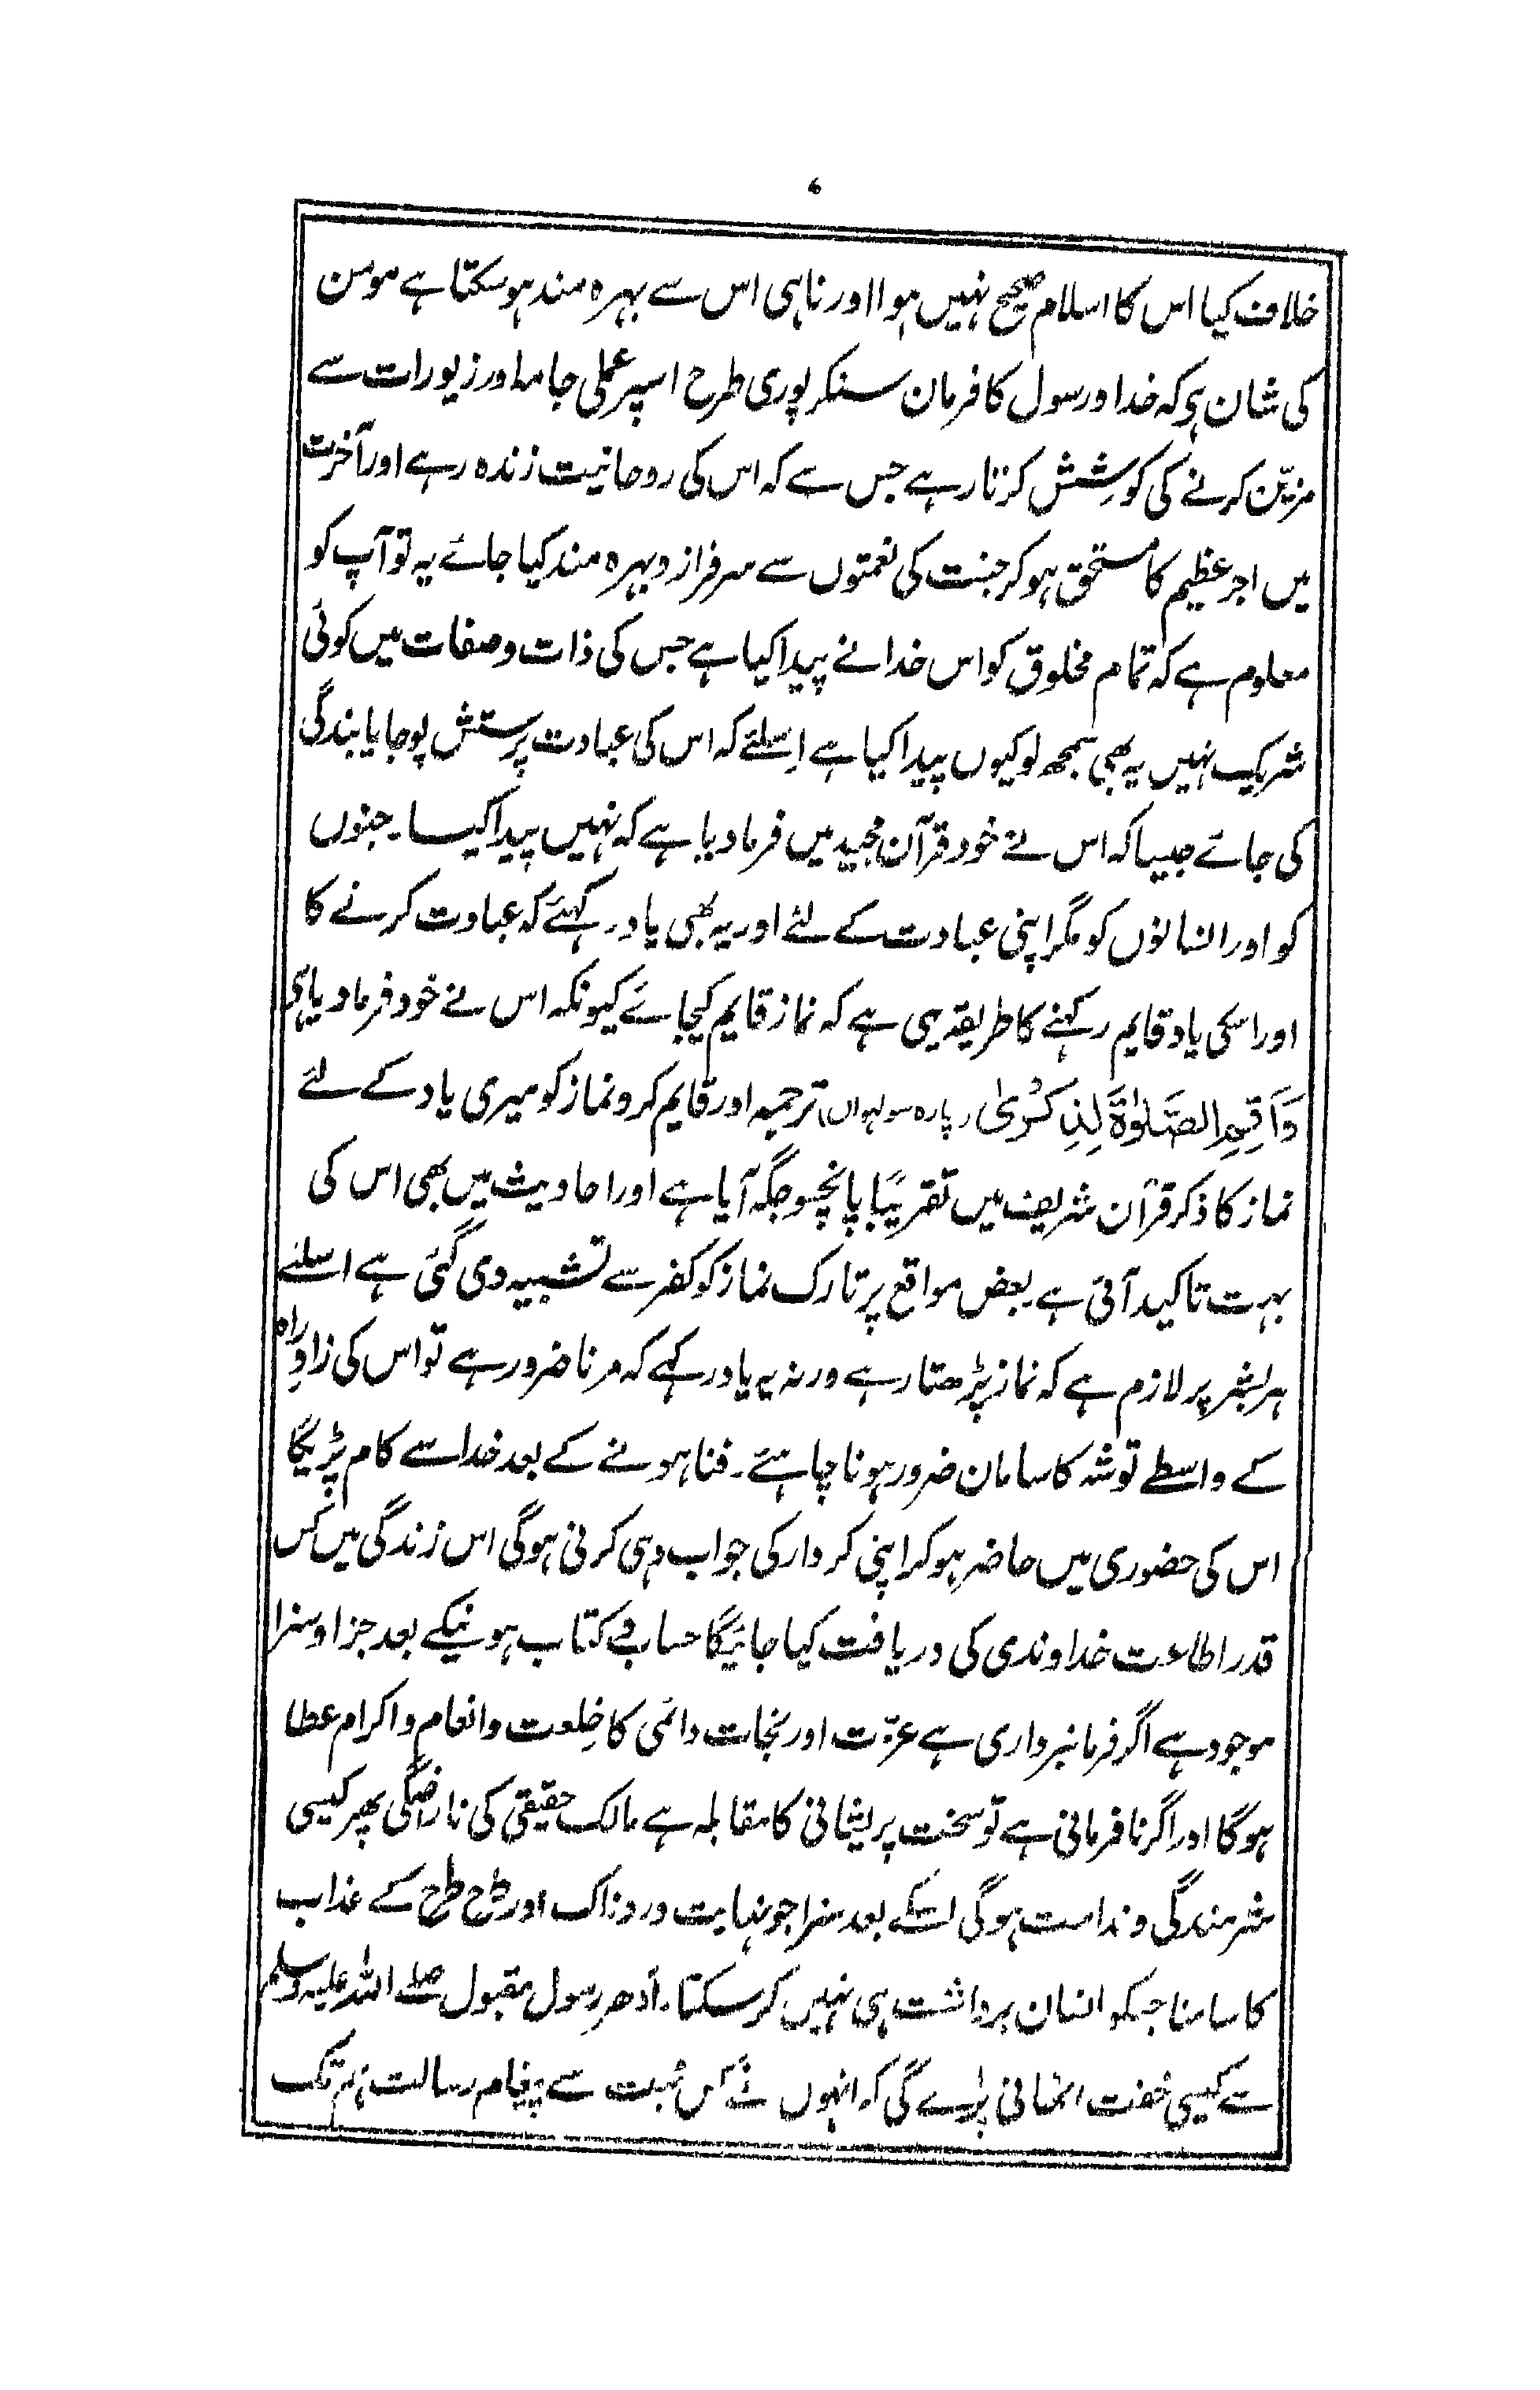 ۶
خلاف کیا اس کا اسلام صحیح نہیں ہوا اور نا ہی اس سے بہرہ مند ہو سکتا ہے مومن
کی شان ہی کہ خدا و رسول کا فرمان سنکر پوری طرح اسپر عملی جامہ اور زیورات سے
مزیّن کرنے کی کوشِش کرتا رہے جس سے کہ اس کی روحانیت زندہ رہے اور آخرت
میں اجر عظیم کا مستحق ہو کر جنت کی نعمتوں سے سرفراز و بہرہ مند کیا جائے یہ تو آپ کو
معلوم ہے کہ تمام مخلوق کو اس خدا نے پیدا کیا ہے جس کی ذات و صفات میں کوئی
شریک نہیں یہ بھی سمجھ لو کیوں پیدا کیا ہے اِسلئے کہ اس کی عبادت پرستش پوجا یا بندگی
کی جائے جیسا کہ اس نے خود قرآن مجید میں فرما دیا ہے کہ نہیں پیدا کیا۔ جنوں
کو اور انسانوں کو مگر اپنی عبادت کے لئے اور یہ بھی یاد رکہئے کہ عبادت کرنے کا
اور اسکی یاد قایم رکہنے کا طریقہ یہی ہے کہ نماز قایم کیجائے کیونکہ اس نے خود فرما دیا ہی
وَاَقِمِ الصَّلوٰۃَ لِذِکْرِیْ (پارہ سولہواں) ترجمہ اور قایم کرو نماز کو میری یاد کے لئے
نماز کا ذکر قرآن شریف میں تقریبًا پانچسو جگہ آیا ہے اور احادیث میں بھی اس کی
بہت تاکید آئی ہے۔ بعض مواقع پر تارک نماز کو کفر سے تشبیہ دی گئی ہے اسلئے
ہر بشر پر لازم ہے کہ نماز پڑھتا رہے ورنہ یہ یاد رکہے کہ مرنا ضرور ہے تو اس کی زادِ راہ
کے واسطے توشہ کا سامان ضرور ہونا چاہئے۔ فنا ہونے کے بعد خدا سے کام پڑیگا
اس کی حضوری میں حاضر ہو کر اپنی کردار کی جواب دہی کرنی ہوگی اس زندگی میں کس
قدر اطاعت خداوندی کی دریافت کیا جائیگا حساب کتاب ہونیکے بعد جزا و سزا
موجود ہے اگر فرمانبرداری ہے عزّت اور نجات دائمی کا خِلعت و انعام و اکرام عطا
ہوگا اور اگر نافرمانی ہے تو سخت پریشانی کا مقابلہ ہے مالک حقیقی کی ناراضگی پھر کیسی
شرمندگی و ندامت ہوگی اسکے بعد سزا جو نہایت دردناک اور طرح طرح کے عذاب
کا سامنا جسکو انسان برداشت ہی نہیں کر سکتا۔ اُدھر رسول مقبول صلے اللہ علیہ وسلم
سے کیسی خفت اٹھانی پڑے گی کہ انہوں نے کس سے پیغام رسالت ہم تک